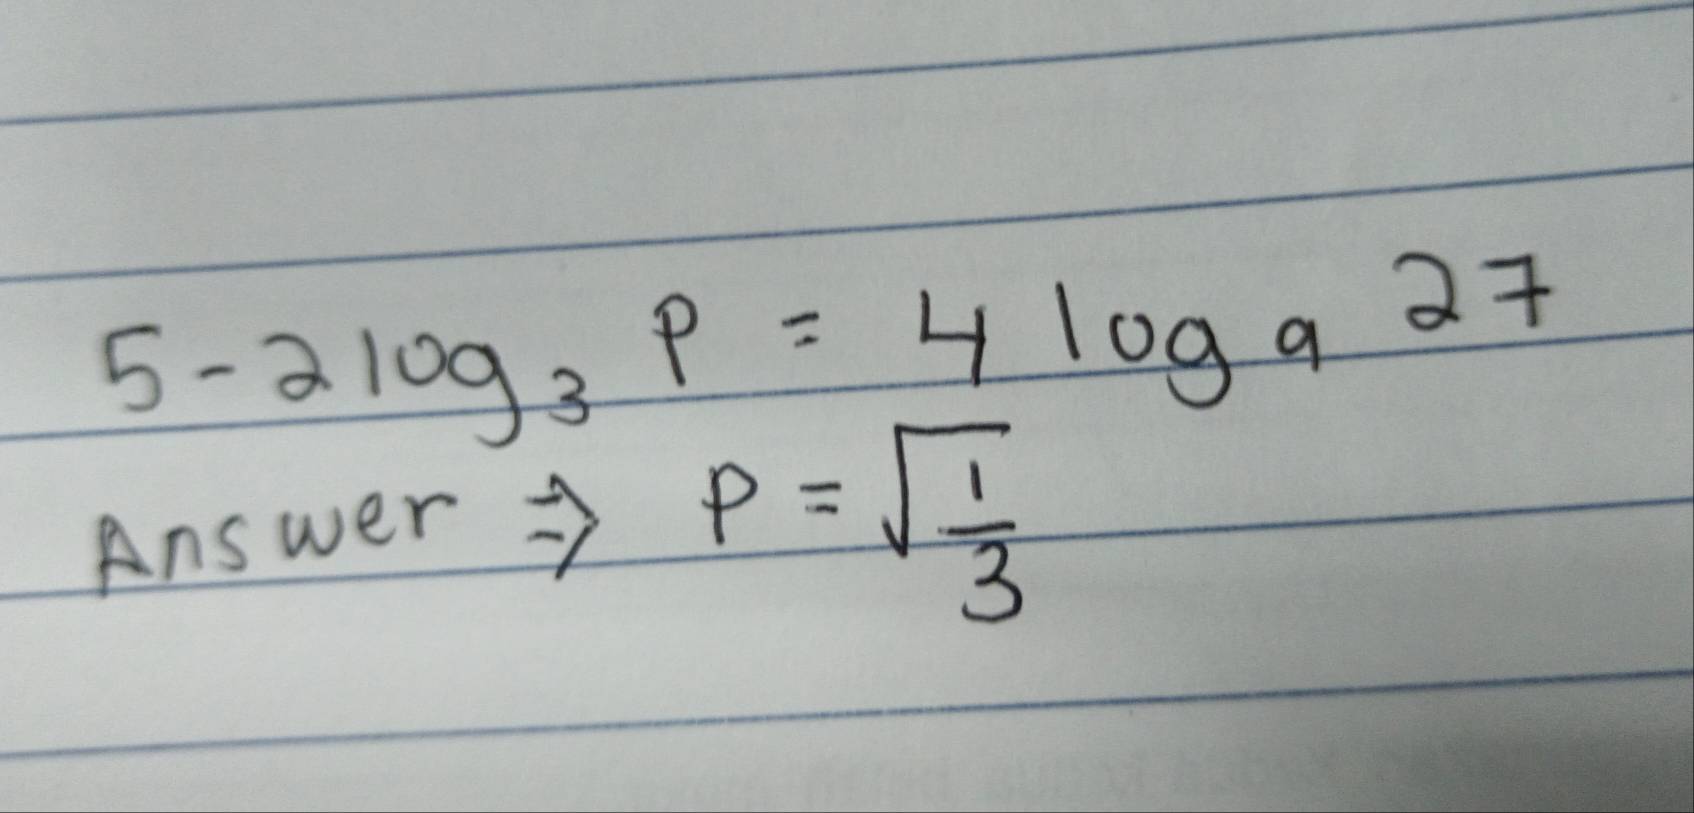 5-2log₃ P = 4 log₉ 27
Answer ⇒ P = √(1/3)